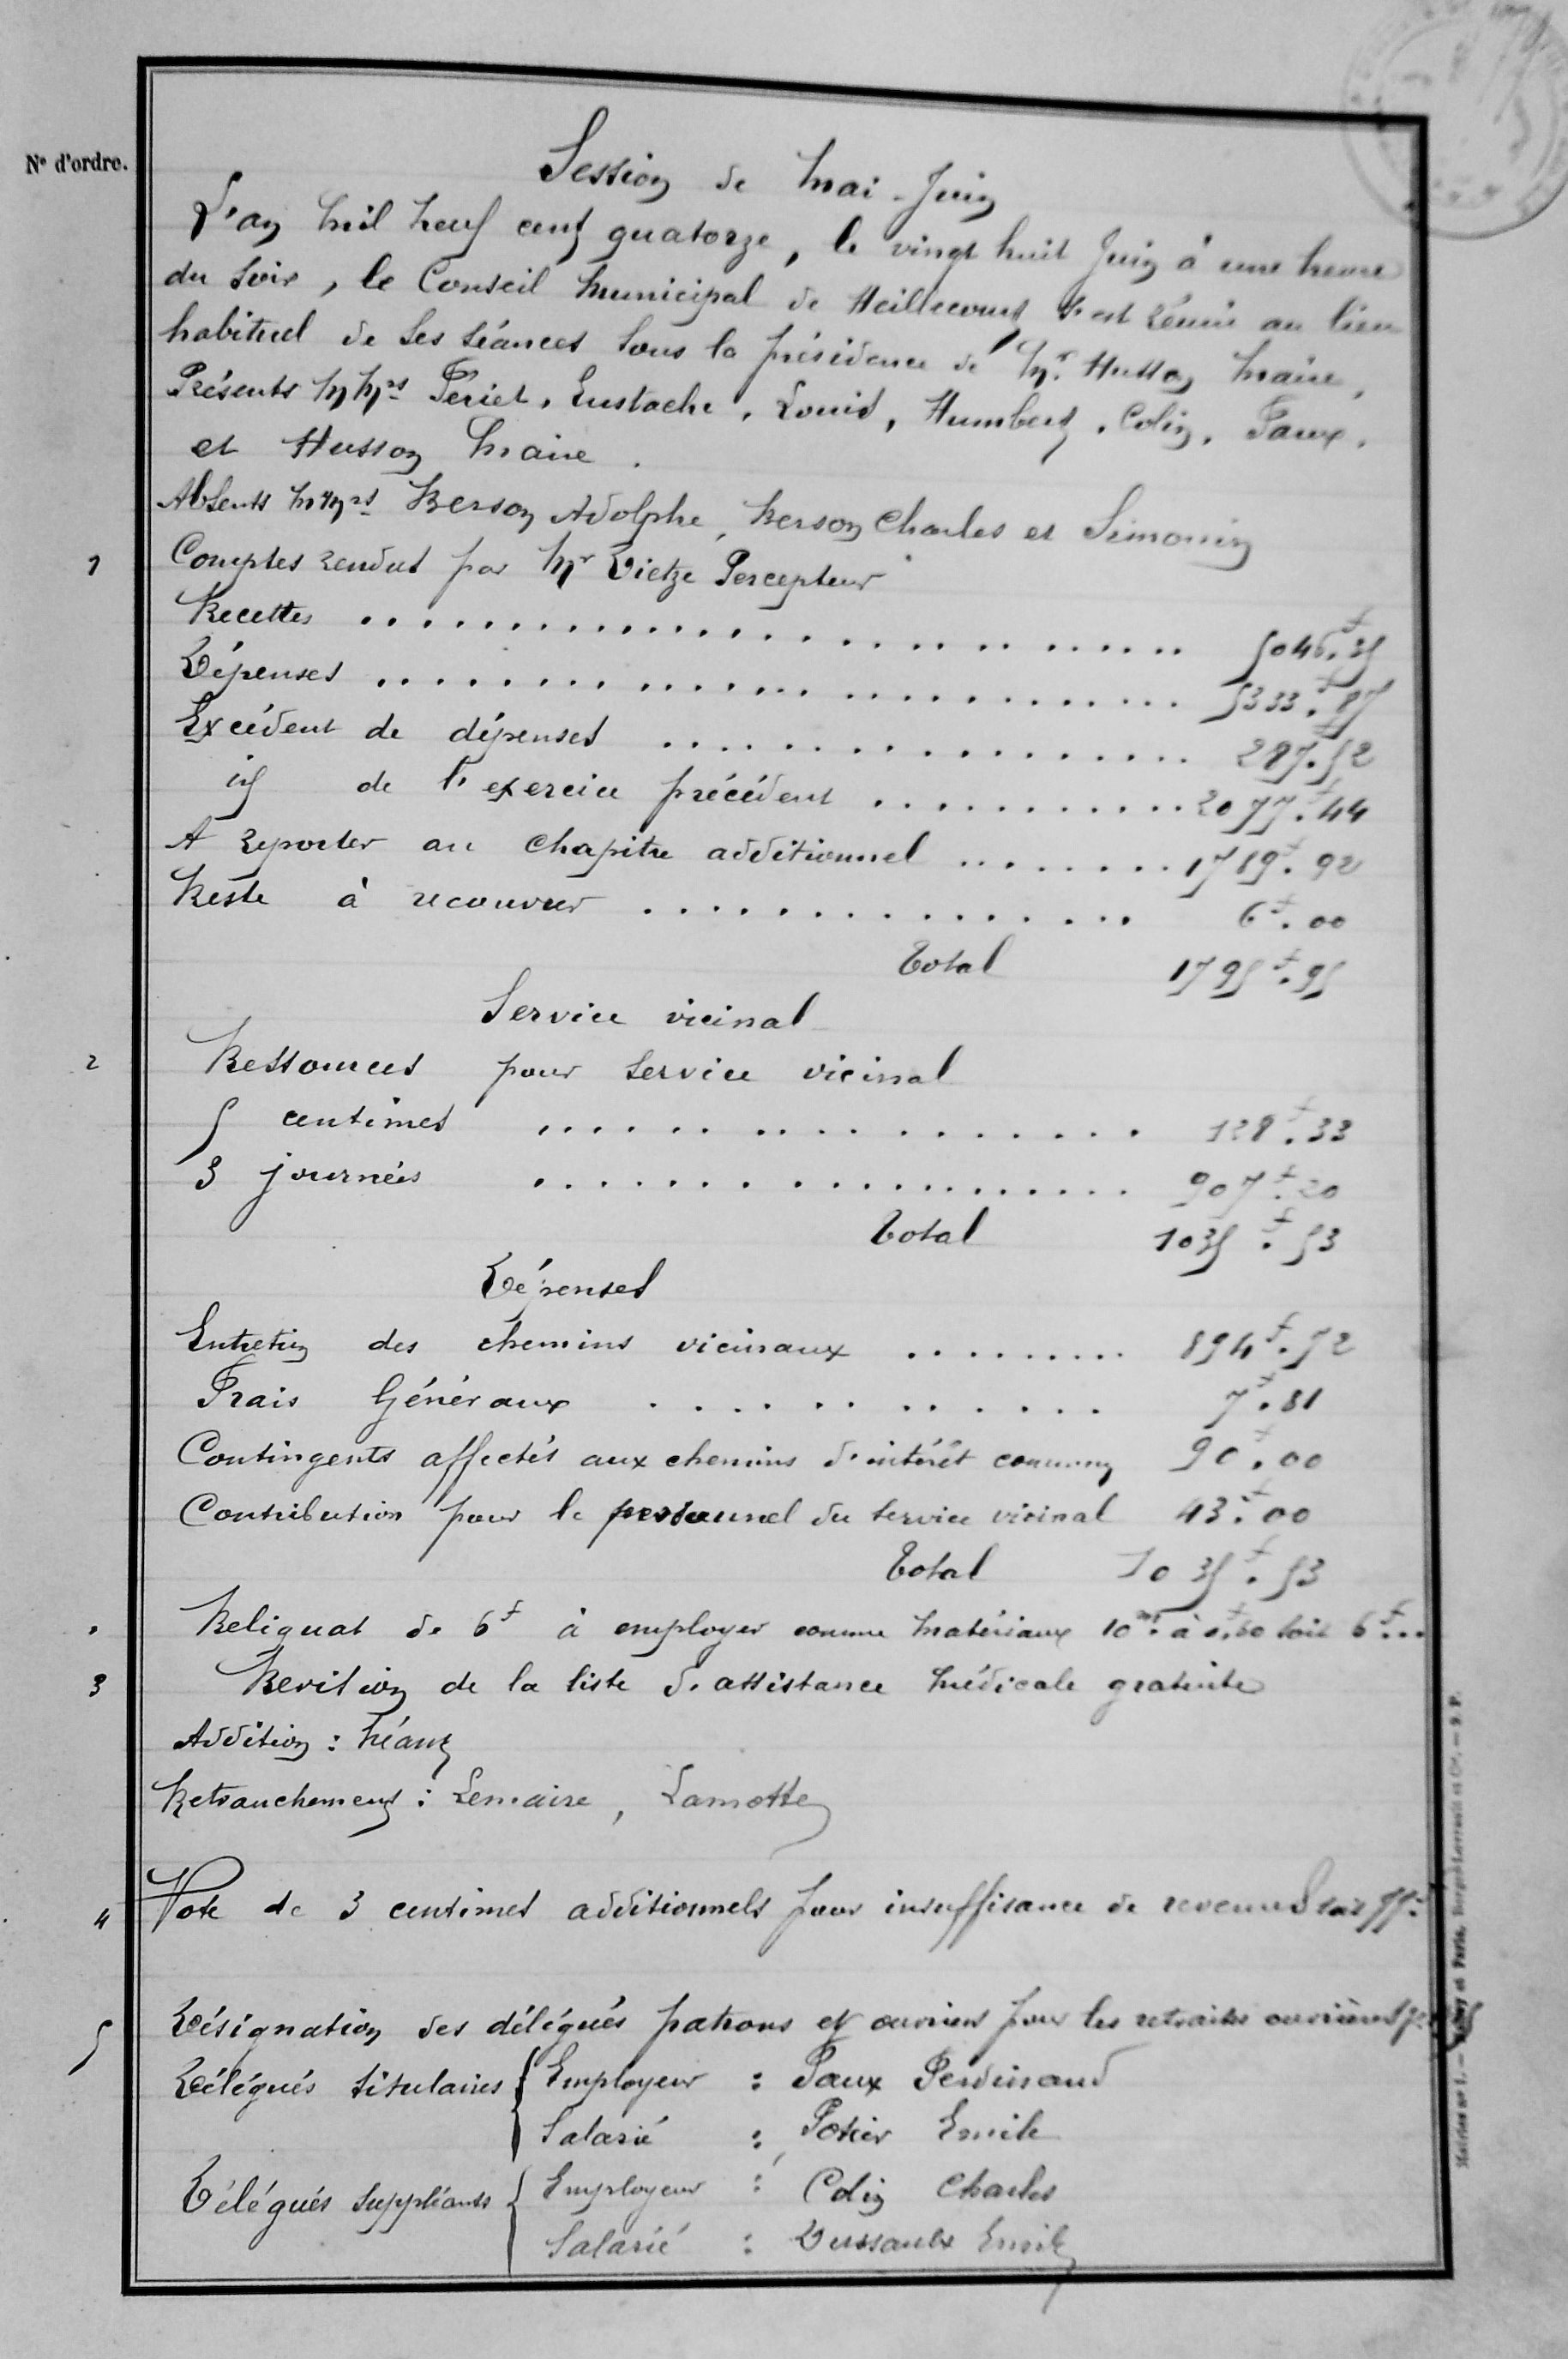 N° d'ordre.
Session de Mai-Juin
L'an mil neuf cent quatorze, le vingt huit Juin à une heure
du soir, le Conseil Municipal de Heillecourt s'est réuni au lieu
habituel de ses séances sous la présidence de Mr. Husson Maire,
Présents MMrs Périet, Eustache, Louis, Humbert, Colin, Faux,
et Husson Maire.
Absents MMrs Kerson Adolphe, Kerson Charles et Simonin
1 Comptes rendus par Mr Dietze Percepteur
Recettes .......................... 5046f.35
Dépenses .......................... 5333f.87
Excédent de dépenses .................. 287f.52
id de l'exercice précédent ............ 2077f.44
A reporter au chapitre additionnel ........ 1789f.92
Reste à recouvrer ................ 6f.00
Total 1795f.95
Service vicinal
2 Ressources pour service vicinal
5 centimes .................. 128f.33
3 journées .................. 907f.20
Total 1035f.53
Dépenses
Entretien des chemins vicinaux ......... 894f.72
Frais Généraux ............ 7f.81
Contingents affectés aux chemins d'intérêt commun 90f.00
Contribution pour le personnel du service vicinal 43f.00
Total 1035f.53
Reliquat de 6f à employer comme matériaux 10m. à 0f.60 soit 6f...
3 Revision de la liste d'assistance médicale gratuite
Addition : Néant
Retranchement : Lemaire, Lamotte
4 Vote de 3 centimes additionnels pour insuffisance de revenus
5 Désignation des délégués patrons et ouvriers pour les retraites ouvrières
Délégués titulaires { Employeur : Faux Ferdinand
Salarié : Potier Emile
Délégués suppléants { Employeur : Colin Charles
Salarié : Dussaulx Emile